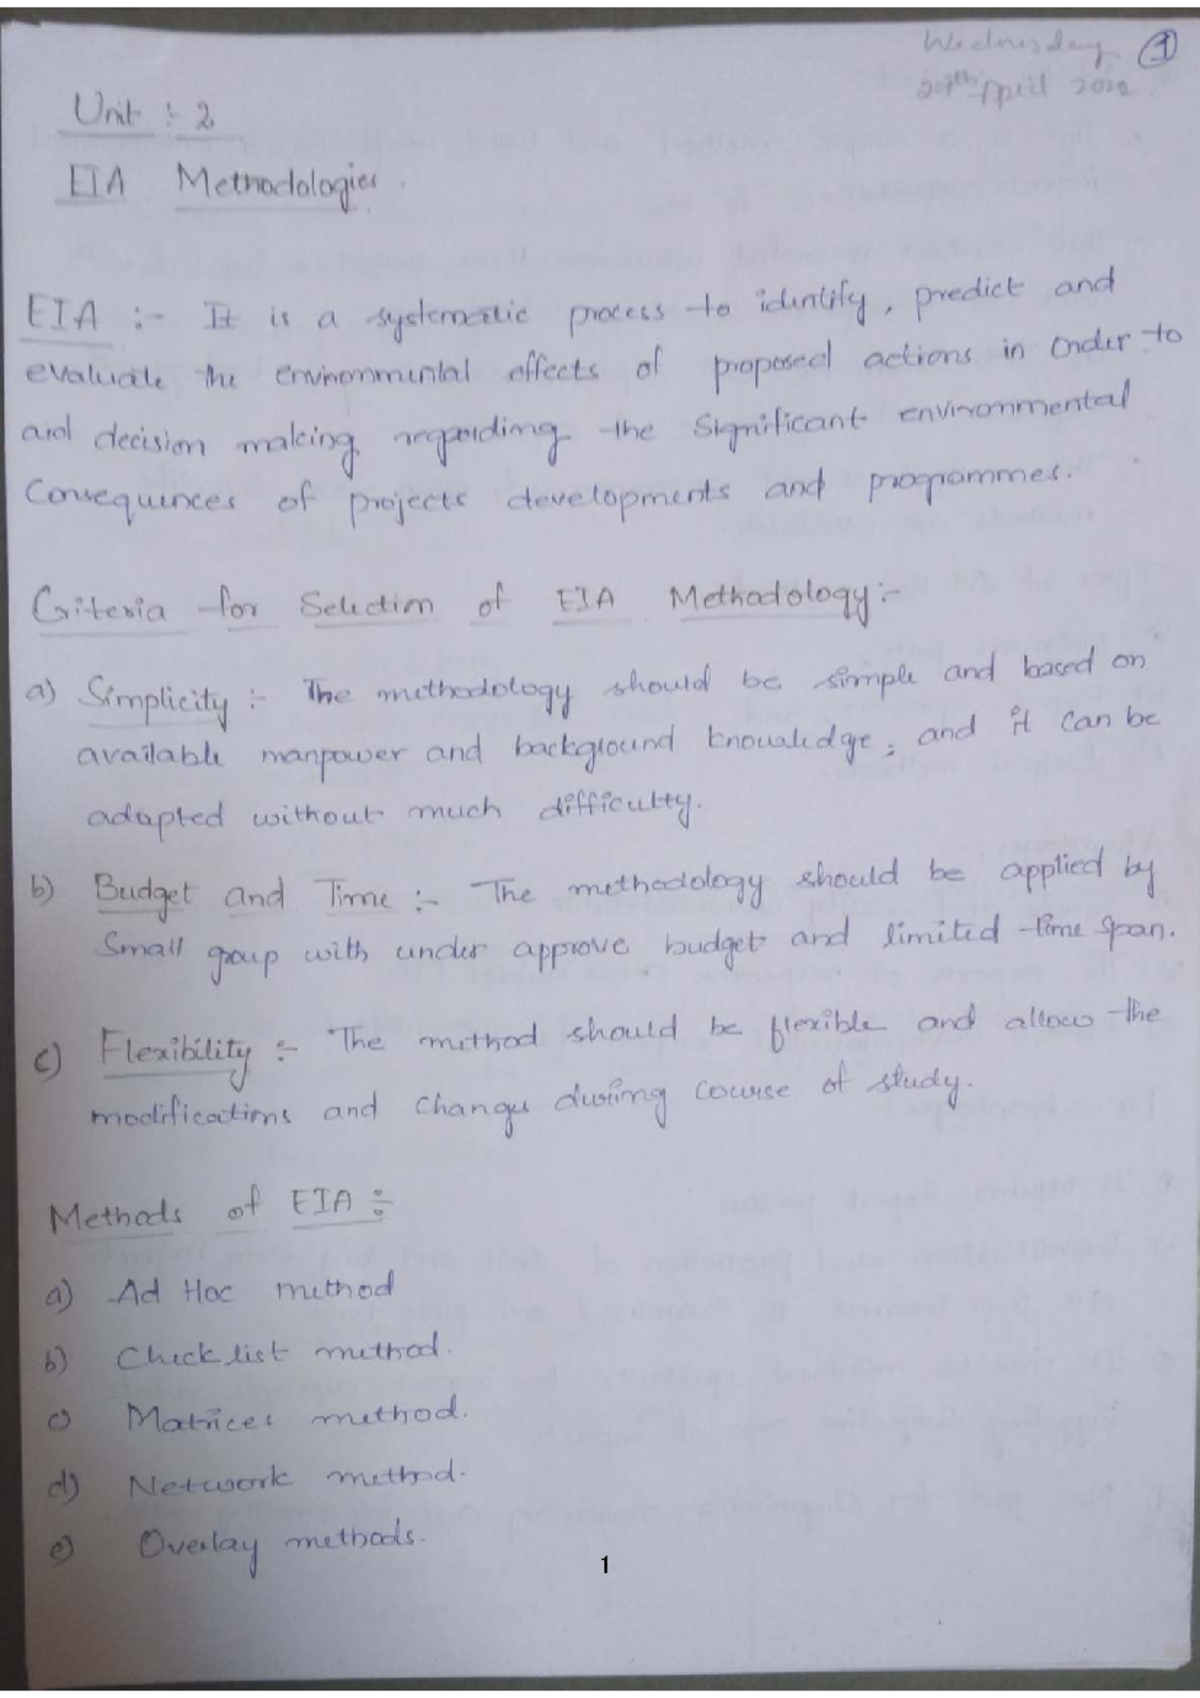 Wednesday ①
April 2022.
Unit :- 2
EIA Methodologies.
EIA :- It is a systematic process to identify, predict and
evaluate the environmental effects of proposed actions in order to
aid decision making regarding the significant environmental
Consequences of projects developments and programmes.
Criteria for Selection of EIA Methodology:-
a) Simplicity :- The methodology should be simple and based on
available manpower and background knowledge, and it can be
adapted without much difficulty.
b) Budget and Time :- The methodology should be applied by
Small group with under approve budget and limited time span.
c) Flexibility :- The method should be flexible and allow the
modifications and change during course of study.
Methods of EIA :-
a) Ad Hoc method
b) Check list method.
c) Matrices method.
d) Network method.
e) Overlay methods.
1